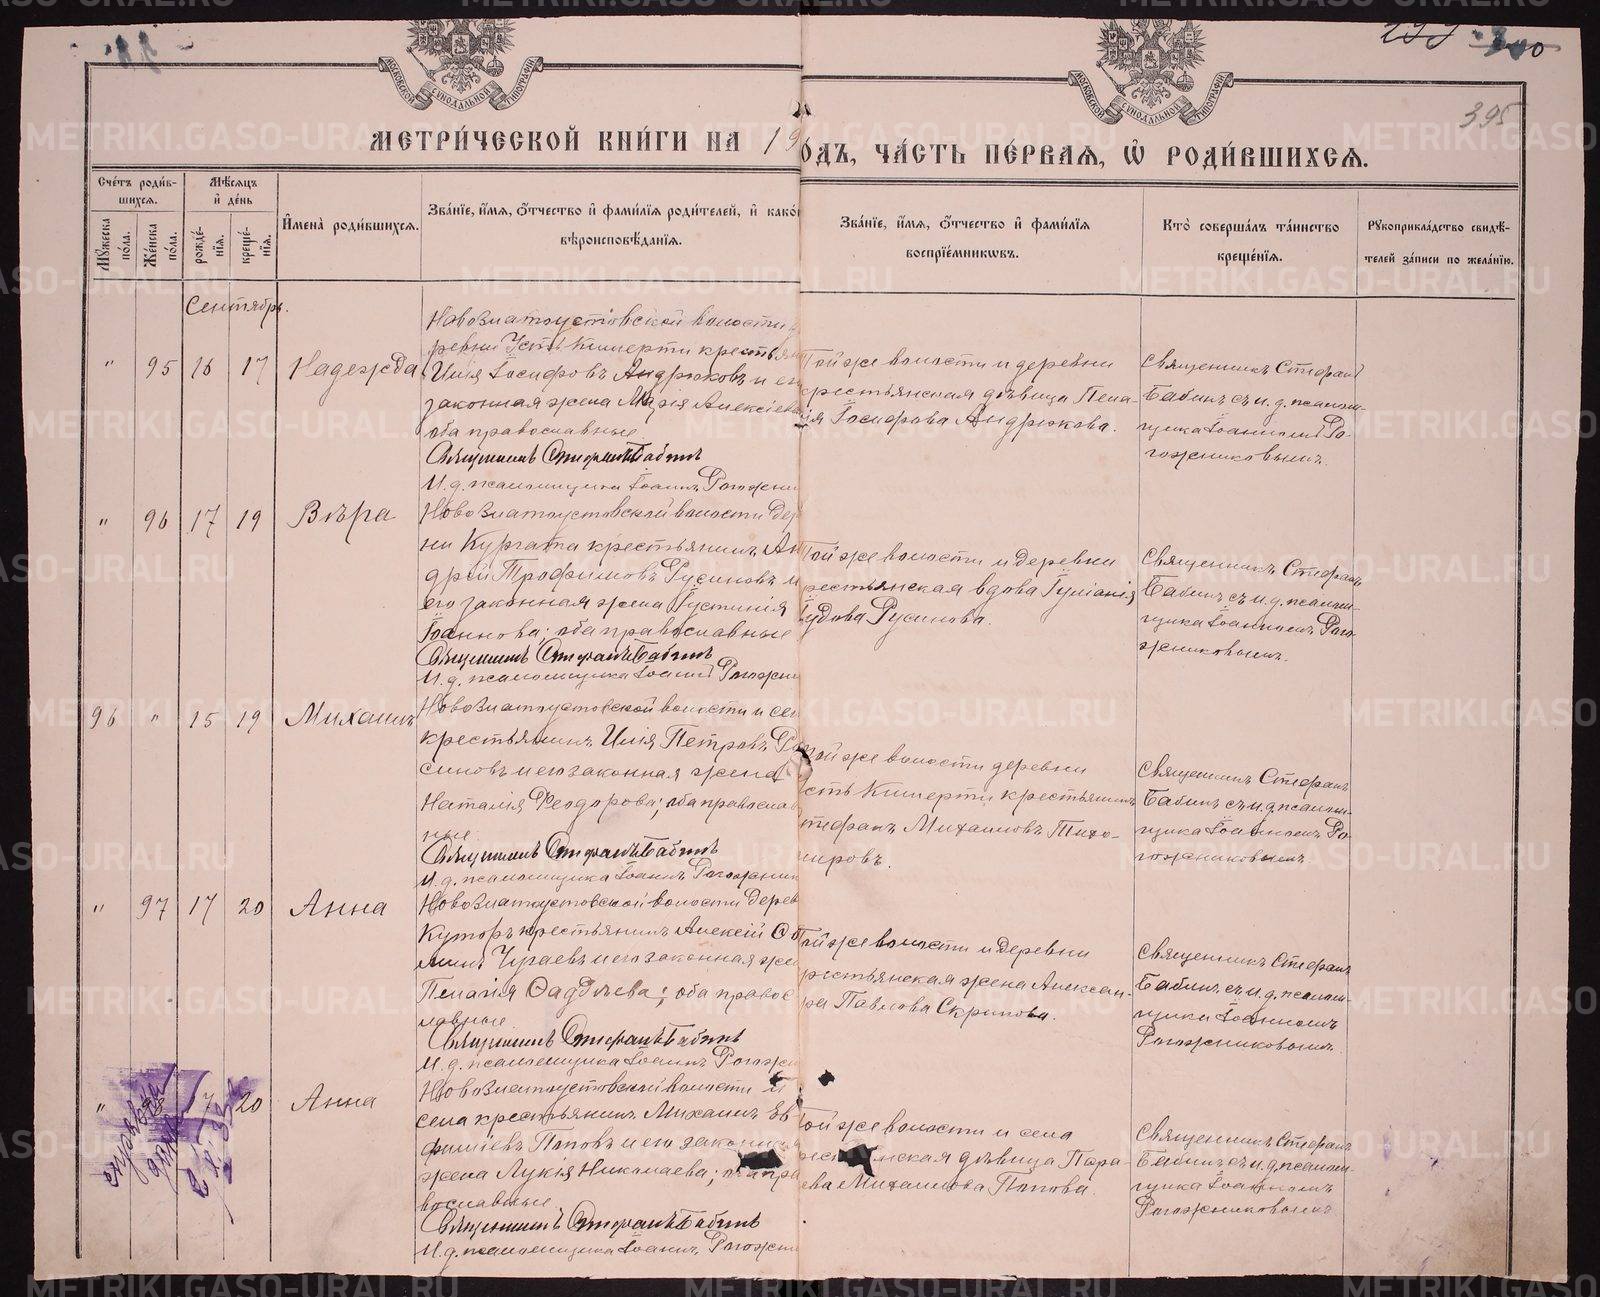 299 300
395
МОСКОВСКОЙ СѴНОДАЛЬНОЙ ТИПОГРАФІИ
МОСКОВСКОЙ СѴНОДАЛЬНОЙ ТИПОГРАФІИ
МЕТРИ́ЧЕСКОЙ КНИ́ГИ НА 19
ОДЪ, ЧА́СТЬ ПЕ́РВАЯ, Ѡ РОДИ́ВШИХСЯ.
Сче́тъ роди́в-
шихся.
Мѣ́сяцъ
и де́нь
Мꙋ́жеска по́ла.
Же́нска по́ла.
рожде́-
нїя.
креще́-
нїя.
И҆мена̀ роди́вшихся.
Зва́нїе, и҆́мя, ѻ҆́тчество и҆ фами́лїя роди́телей, и҆ како́
вѣроисповѣ́данїя.
Зва́нїе, и҆́мя, ѻ҆́тчество и҆ фами́лїя
воспрїе́мникѡвъ.
Кто̀ соверша́лъ та́инство
креще́нїя.
Рꙋкоприкла́дство свидѣ́-
телей за́писи по жела́нїю.
Сентябрь.
" 95 16 17 Надежда
Новозлатоустовской волости
ревни Усть Кишерти крестьян
Илія Іосифовъ Андрюковъ и его
законная жена Марія Алексіева
оба православные
Священникъ Стефанъ Бабинъ
И. д. псаломщика Іоаннъ Рогожни
Той же волости и деревни
крестьянская дѣвица Пела-
гія Іосифова Андрюкова.
Священникъ Стефанъ
Бабинъ съ и. д. псалом-
щика Іоанномъ Ро-
гожниковымъ.
" 96 17 19 Вѣра
Новозлатоустовской волости дер
ни Кургата крестьянинъ Ан
дрей Трофимовъ Русиновъ и
его законная жена Іустинія
Іоаннова; оба православные
Священникъ Стефанъ Бабинъ
И. д. псаломщика Іоаннъ Рогожни
Той же волости и деревни
крестьянская вдова Іуліанія
Русинова.
Священникъ Стефанъ
Бабинъ съ и. д. псалом-
щика Іоанномъ Рого-
жниковымъ.
96 " 15 19 Михаилъ
Новозлатоустовской волости и сел
крестьянинъ Илія Петровъ Ру
синовъ и его законная жена
Наталія Феодорова; оба православ
ные
Священникъ Стефанъ Бабинъ
И. д. псаломщика Іоаннъ Рогожник
Той же волости деревни
Усть Кишерти крестьянинъ
Стефанъ Михаиловъ Тихо-
мировъ.
Священникъ Стефанъ
Бабинъ съ и. д. псалом-
щика Іоанномъ Ро-
гожниковымъ
" 97 17 20 Анна
Новозлатоустовской волости дерев
Куторъ крестьянинъ Алексій Ѳо
минъ Чугаевъ и его законная жен
Пелагія Ѳаддѣева; оба правос
лавные
Священникъ Стефанъ Бабинъ
И. д. псаломщика Іоаннъ Рогожн
Той же волости и деревни
крестьянская жена Алексан-
дра Павлова Скрипова.
Священникъ Стефанъ
Бабинъ съ и. д. псалом-
щика Іоанномъ
Рогожниковымъ.
" 20 Анна
Новозлатоустовской волости и
села крестьянинъ Михаилъ Ев
фиміевъ Поповъ и его законная
жена Лукія Николаева; оба пра
вославные
Священникъ Стефанъ Бабинъ
И. д. псаломщика Іоаннъ Рогожни
Той же волости и села
крестьянская дѣвица Пара-
Михаилова Попова.
Священникъ Стефанъ
Бабинъ съ и. д. псалом-
щика Іоанномъ
Рогожниковымъ
METRIKI.GASO-URAL.RU